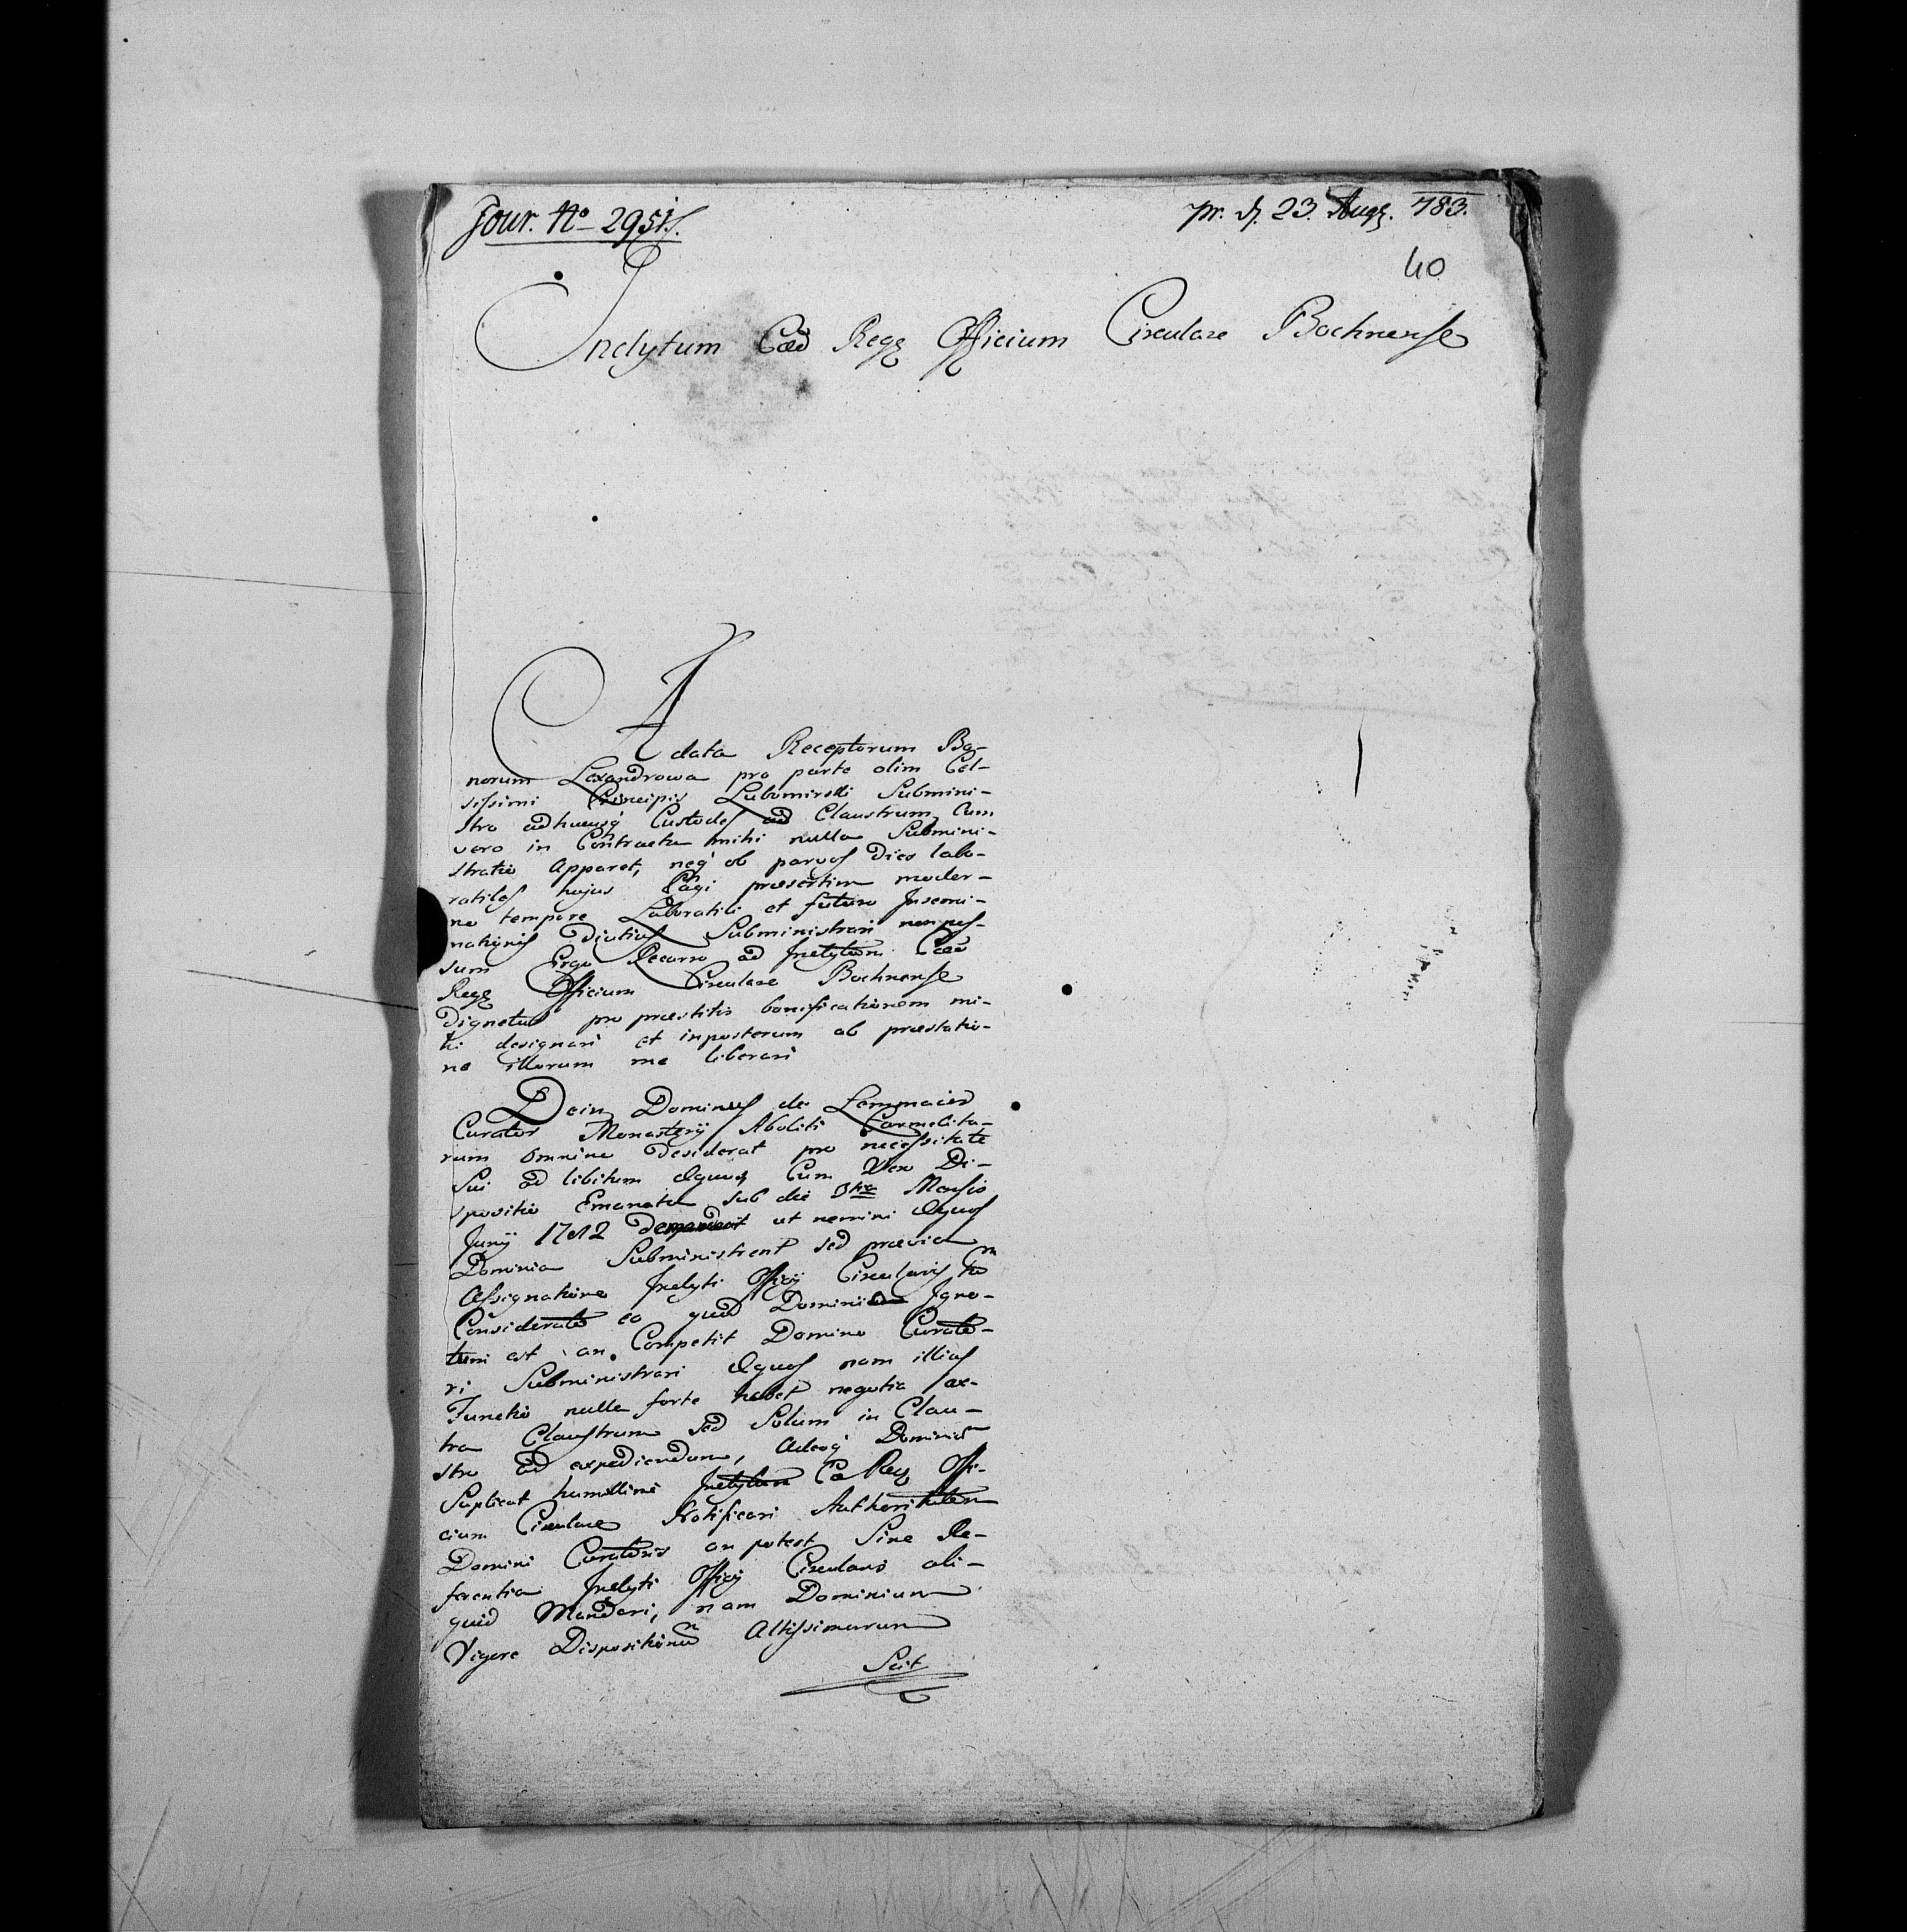 Jour. No 2951/.
pr. d. 23. Augs. 783.
40
Inclytum Cæo Rege Officium Circulare Bochnense
A data Receptorum Bo-
norum Lexandrowa pro parte olim Cel-
sissimi Principis Lubomirski Submini-
stro adhucusq Custodes ad Claustrum, Cum
vero in Contractu mihi nulla Submini-
stratio Apparet, neq ob parvos Dies labo-
ratiles hujus Pagi præsertim moder-
no tempore Laboratili et futuro Insemi-
nationis Diutius Subministrari non pos-
sum Ergo Recurro ad Inclytum Cæo
Rege Officium Circulare Bochnense
Dignetur pro præstitis bonificationem mi-
hi designari et inposterum ab præstatio-
ne illorum me liberari
Dein Dominus de Lemmaier
Curator Monasterij Aboliti Carmelita-
rum omnino desiderat pro necessitate
Sui ad libitum Equos, Cum Vero Di-
spositio Emanata sub die Mensis
Junij 1782 demandavit ut nemini Equos
Dominia Subministrent sed prævia
Assignatione Inclyti Officij Circularis
Considerato eo quod Dominio Igno-
tum est an Competit Domino Curato-
ri Subministrari Equos nam illius
Functio nulla forte habet negotia ex-
tra Claustrum sed Solum in Clau-
stro ad expediendum, Adeoq Dominium
Suplicat humillime Inclytum Cæ Reg Offi-
cium Circulare Notificari Authoritatem
Domini Curatoris an potest Sine Re-
ferentia Inclyti Officij Circularis ali-
quid Mandari, nam Dominium
Vigore Dispositionum Altissimarum
Scit